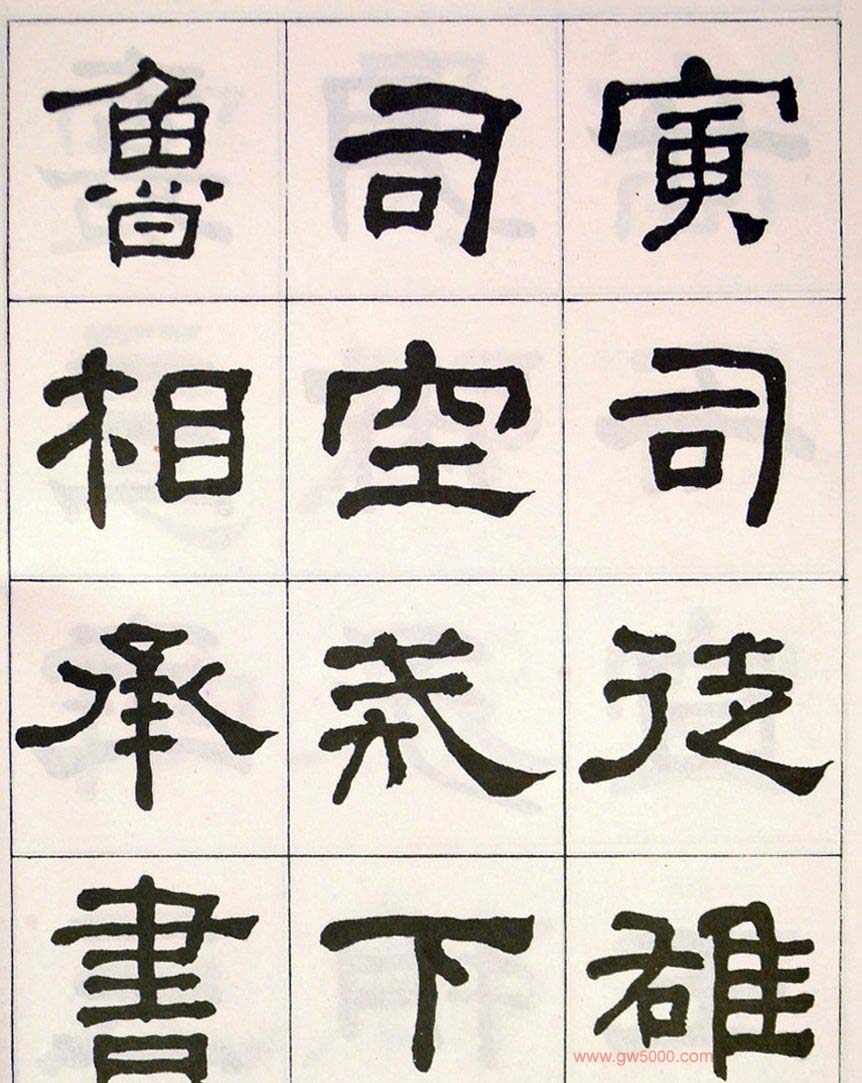 寅司徒雄
司空戒下
魯相承書
www.gw5000.com